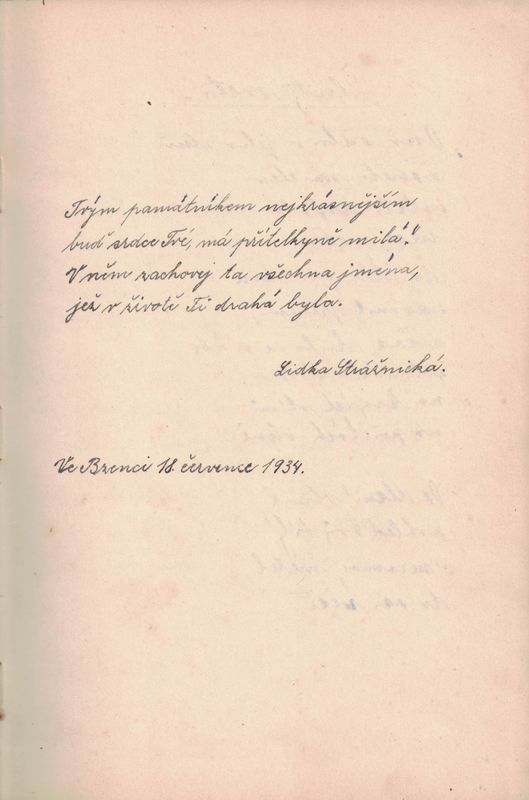 Tvým památníkem nejkrásnějším
buď srdce Tvé, má přítelkyně milá!"
V něm zachovej ta všechna jména,
jež v životě Ti drahá byla.
Lidka Strážnická.
Ve Bzenci 18. července 1934.